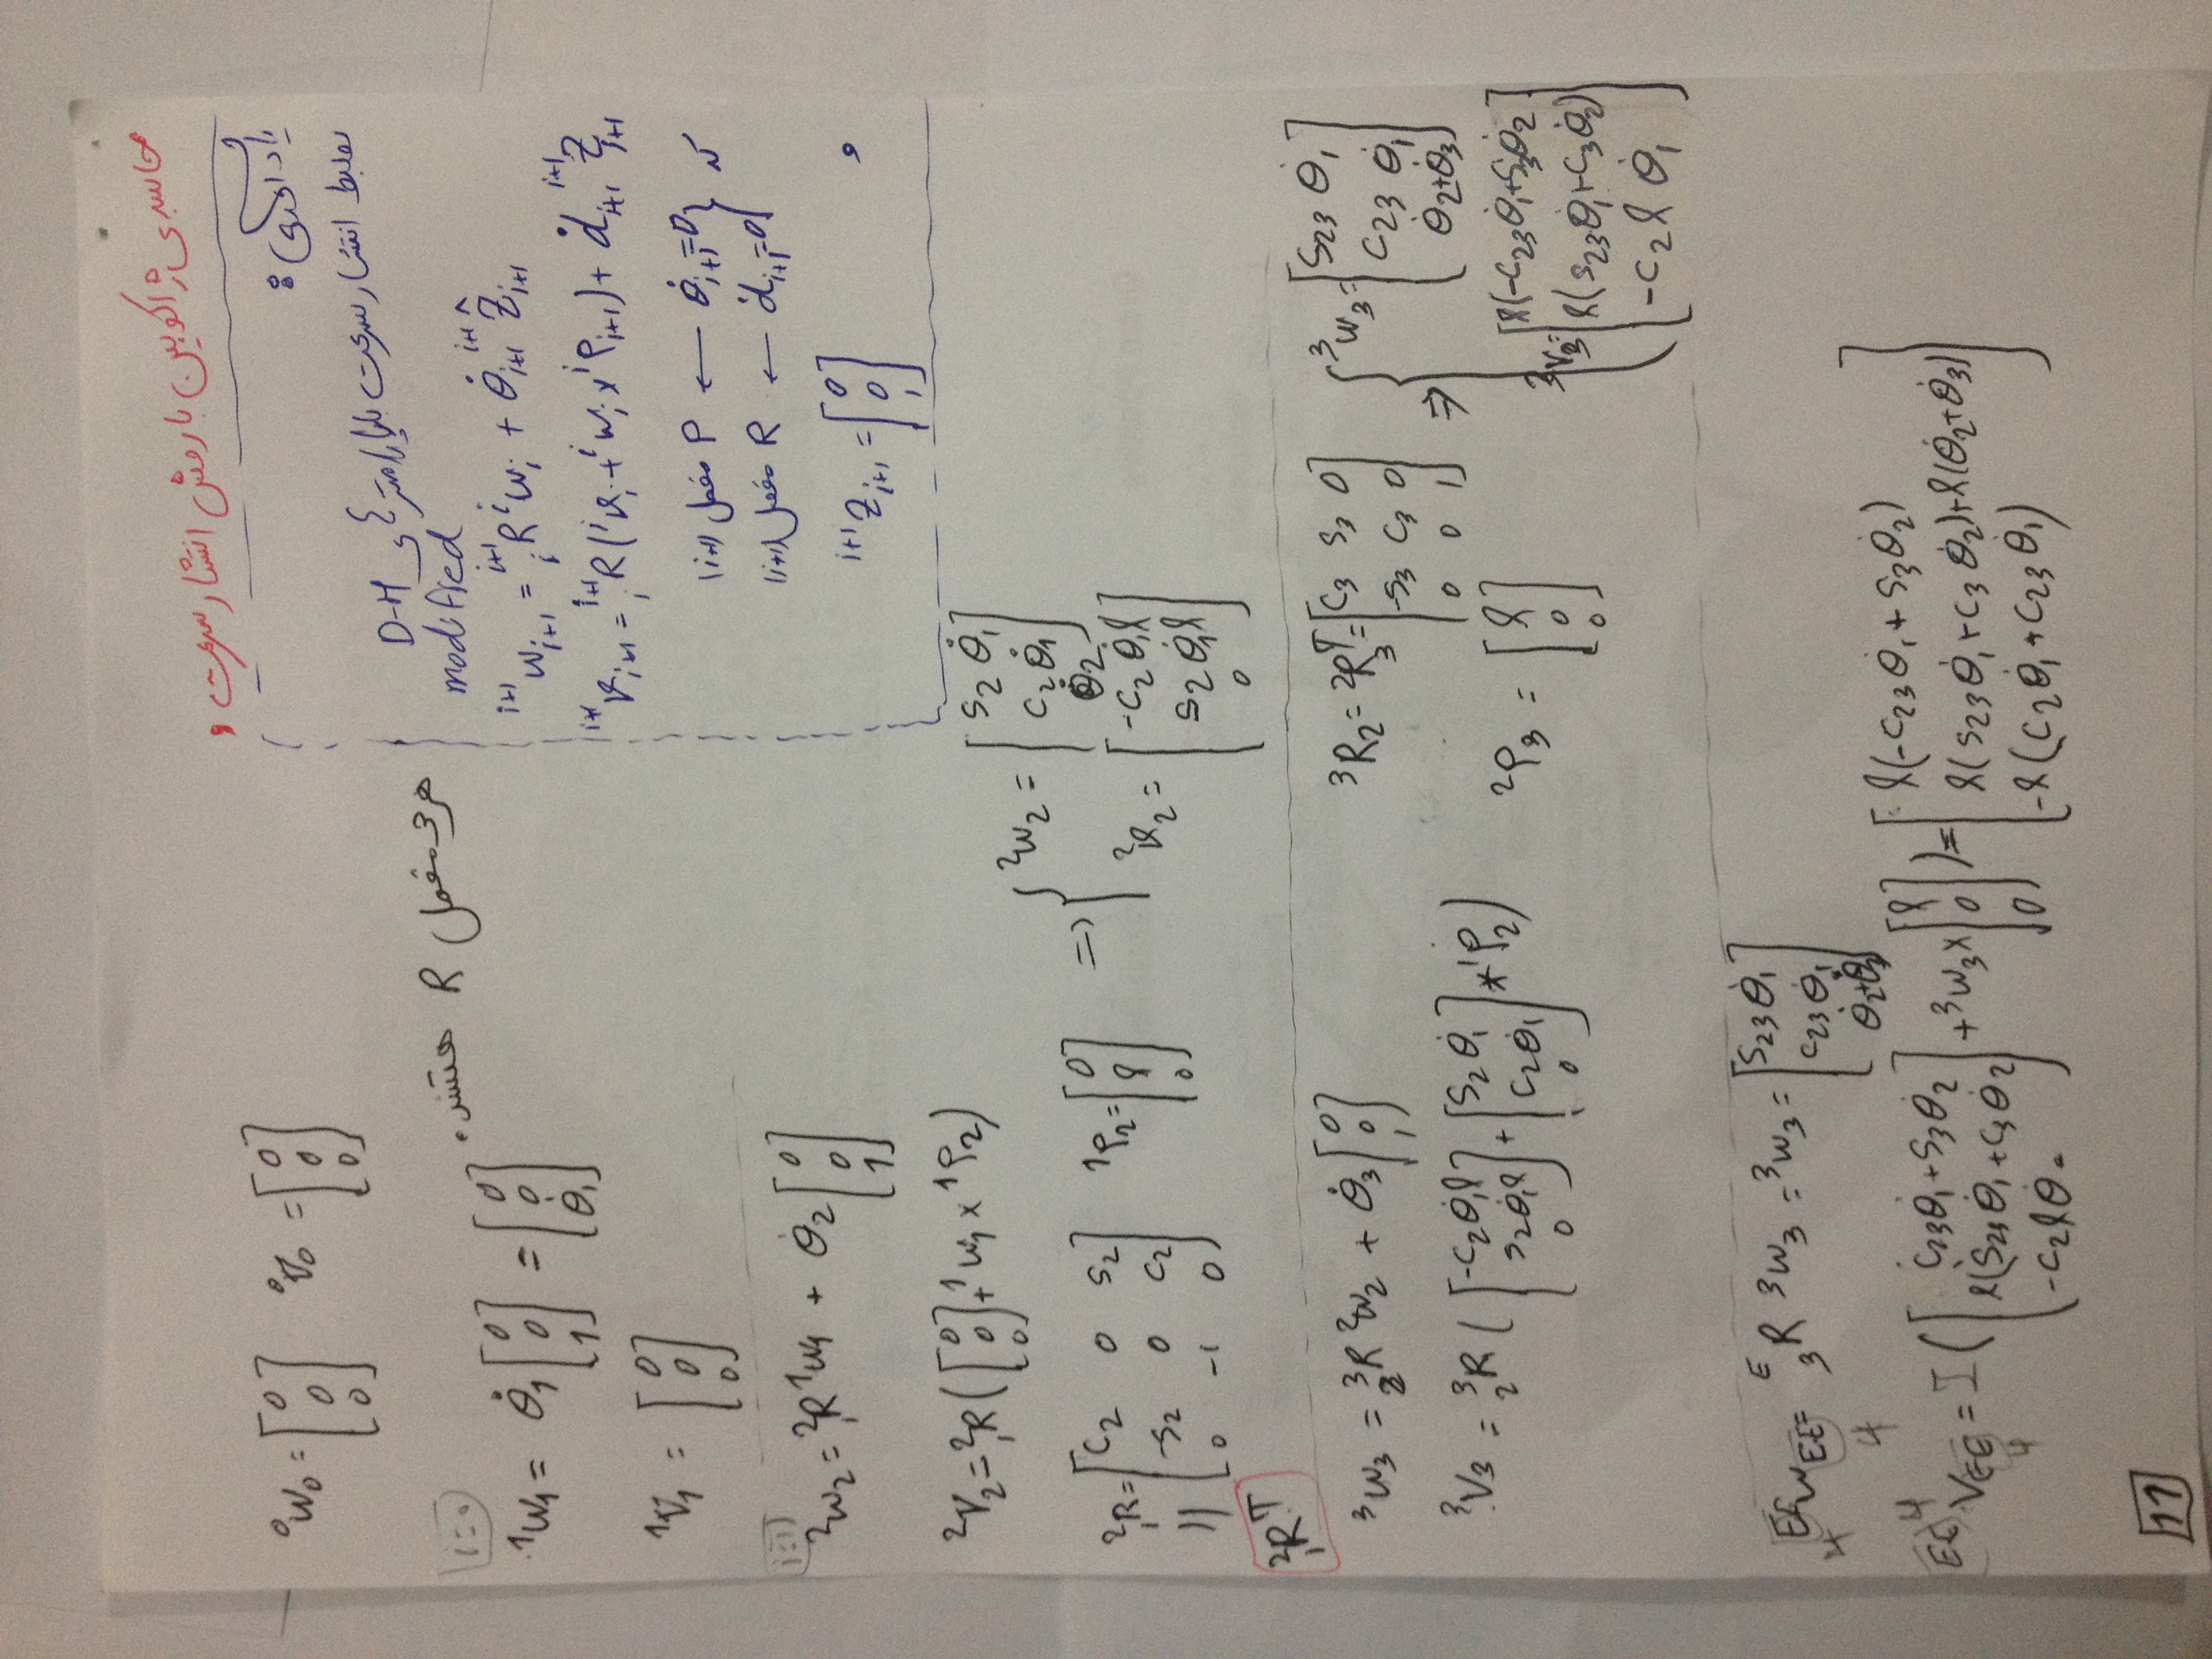 محاسبه‌ی ژاکوبین با روش انتشار سرعت :
یادآوری :
روابط انتشار سرعت با پارامترهای D-H
modified
^{i+1}ω_{i+1} = ^{i+1}_{i}R ^{i}ω_{i} + θ̇_{i+1} ^{i+1}Ẑ_{i+1}
^{i+1}v_{i+1} = ^{i+1}_{i}R(^{i}v_{i} + ^{i}ω_{i} × ^{i}P_{i+1}) + ḋ_{i+1} ^{i+1}Z_{i+1}
که { θ̇_{i+1}=0 ← P مفصل (i+1)
ḋ_{i+1}=0 ← R مفصل (i+1)
و ^{i+1}Z_{i+1} = [0 ; 0 ; 1]
^0ω_0 = [0 ; 0 ; 0] ^0V_0 = [0 ; 0 ; 0]
هر 3 مفصل R هستند.
i=0
^1ω_1 = θ̇_1 [0 ; 0 ; 1] = [0 ; 0 ; θ̇_1]
^1V_1 = [0 ; 0 ; 0]
i=1
^2ω_2 = ^2_1R ^1ω_1 + θ̇_2 [0 ; 0 ; 1]
^2V_2 = ^2_1R ([0 ; 0 ; 0] + ^1ω_1 × ^1P_2)
^2_1R = [C_2 0 S_2 ; -S_2 0 C_2 ; 0 -1 0] ^1P_2 = [0 ; l ; 0] ⇒ { ^2ω_2 = [S_2 θ̇_1 ; C_2 θ̇_1 ; θ̇_2]
^2v_2 = [-C_2 θ̇_1 l ; S_2 θ̇_1 l ; 0]
=
^2_1R^T
^3ω_3 = ^3_2R ^2ω_2 + θ̇_3 [0 ; 0 ; 1]
^3R_2 = ^2_3R^T = [C_3 S_3 0 ; -S_3 C_3 0 ; 0 0 1] ⇒ { ^3ω_3 = [S_23 θ̇_1 ; C_23 θ̇_1 ; θ̇_2+θ̇_3]
^3V_3 = ^3_2R ([-C_2 θ̇_1 l ; S_2 θ̇_1 l ; 0] + [S_2 θ̇_1 ; C_2 θ̇_1 ; 0] * ^1P_2)
^2P_3 = [l ; 0 ; 0]
^3V_3 = [l(-C_23 θ̇_1 + S_3 θ̇_2 ; l(S_23 θ̇_1 + C_3 θ̇_2) ; -C_2 l θ̇_1]
^{EE}ω_{EE} = ^E_3R ^3ω_3 = ^3ω_3 = [S_23 θ̇_1 ; C_23 θ̇_1 ; θ̇_2+θ̇_3]
4
4
^{EE}V_{EE} = I ([C_23 θ̇_1 + S_3 θ̇_2 ; l(S_23 θ̇_1 + C_3 θ̇_2 ; -C_2 l θ̇] + ^3ω_3 × [l ; 0 ; 0]) = [l(-C_23 θ̇_1 + S_3 θ̇_2) ; l(S_23 θ̇_1 + C_3 θ̇_2) + l(θ̇_2+θ̇_3) ; -l(C_2 θ̇_1 + C_23 θ̇_1)]
4
4
11